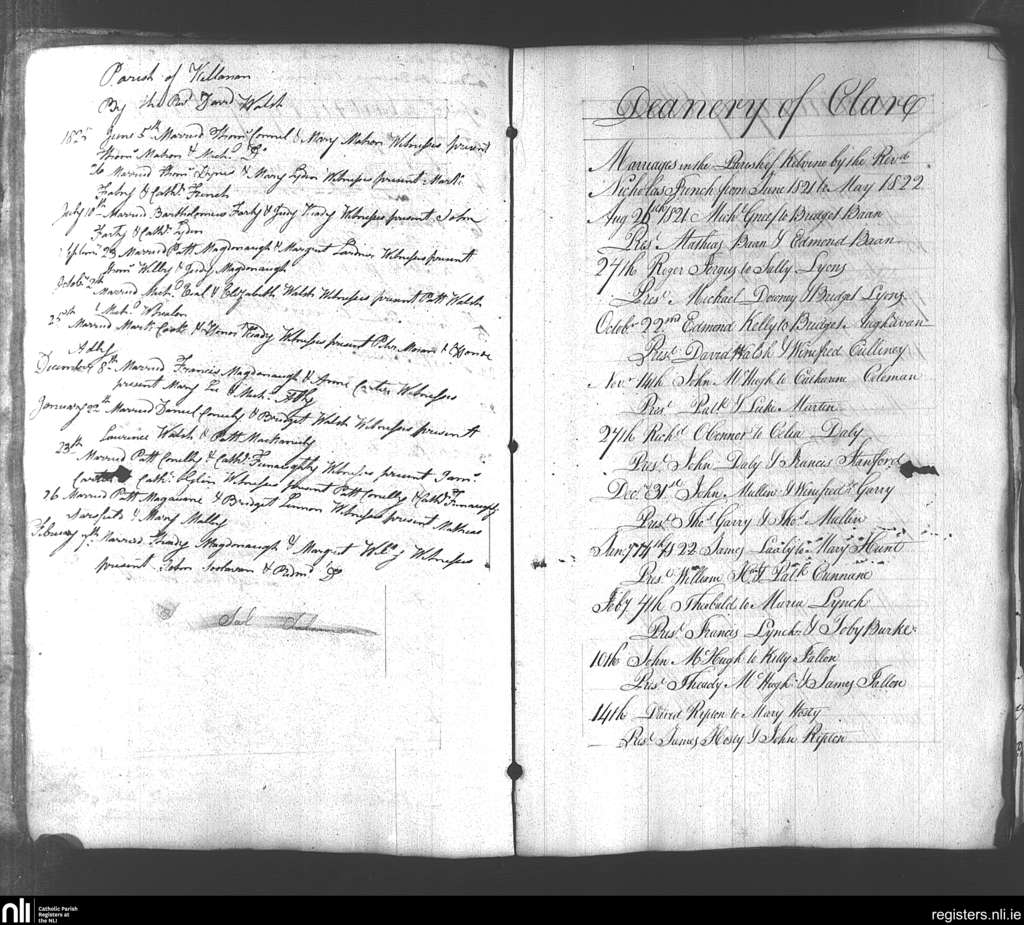 Parish of Killanan
By the Revd David Walsh
1825 June 5th Married Thoms Connel & Mary Mahon Witnesses present
Thoms Mahon & Michl
26 Married Thoms Lynes & Mary Lydon Witnesses present Mark
Fahy & Cathe French
July 10th Married Bartholomew Forty & Judy Ready Witnesses present John
Forty & Cathe Lydon
23 Married Patt Magdonaugh & Margret Lardner Witnesses present
Thoms Willby & Judy Magdonaugh
October Married Michl & Elizabeth Walsh Witnesses present Patt Walsh
& Michl Whealon
25th Married Mark Cook & Honor Ready Witnesses present Peter Moran & Honor
Athy
December 8th Married Francis Magdonaugh & Anne Carter Witnesses
present Mary & Michl Athy
January Married Daniel Conelly & Bridget Walsh Witnesses present
Laurence Walsh & Patt
23th Married Patt Conelly & Cathe Finaughty Witnesses present
Cathe Glin Witnesses present Patt Conelly & Cathe Finaughty
26 Married Patt & Bridget Lennon Witnesses present Mathias
& Mary Malley
February 7th Married Thady Magdonaugh & Margret Witnesses
present John & Redm
Deanery of Clare
Marriages in the Parish of Kilvrine by the Revd
Nicholas French from June 1821 to May 1822
Aug 26th 1821 Michl Grief to Bridget Baan
Prest Mathias Baan & Edmond Baan
27th Roger Fergus to Selly Lyons
Prest Michael Downey & Bridget Lyons
Octobr 22nd Edmond Kelly to Bridget
Prest David Walsh & Winifred Culliney
Novr 14th John McHugh to Catharine Coleman
Prest Patk & Luke Martin
27th Richd OConnor to Celia Daly
Prest John Daly & Francis Stanford
Decr 31st John Mullin & Winifred Garry
Prest Thos Garry & Thos Mullin
Jany 1822 James Lally to Mary Hunt
Prest William H & Patk Cunnane
Feby 4th Theobald to Maria Lynch
Prest Francis Lynch & Toby Burke
10th John McHugh to Kitty Fallon
Prest Thady McHugh & James Fallon
14th David Repton to Mary Hosty
Prest James Hosty & John Repton
nli
Catholic Parish
Registers at
the NLI
registers.nli.ie